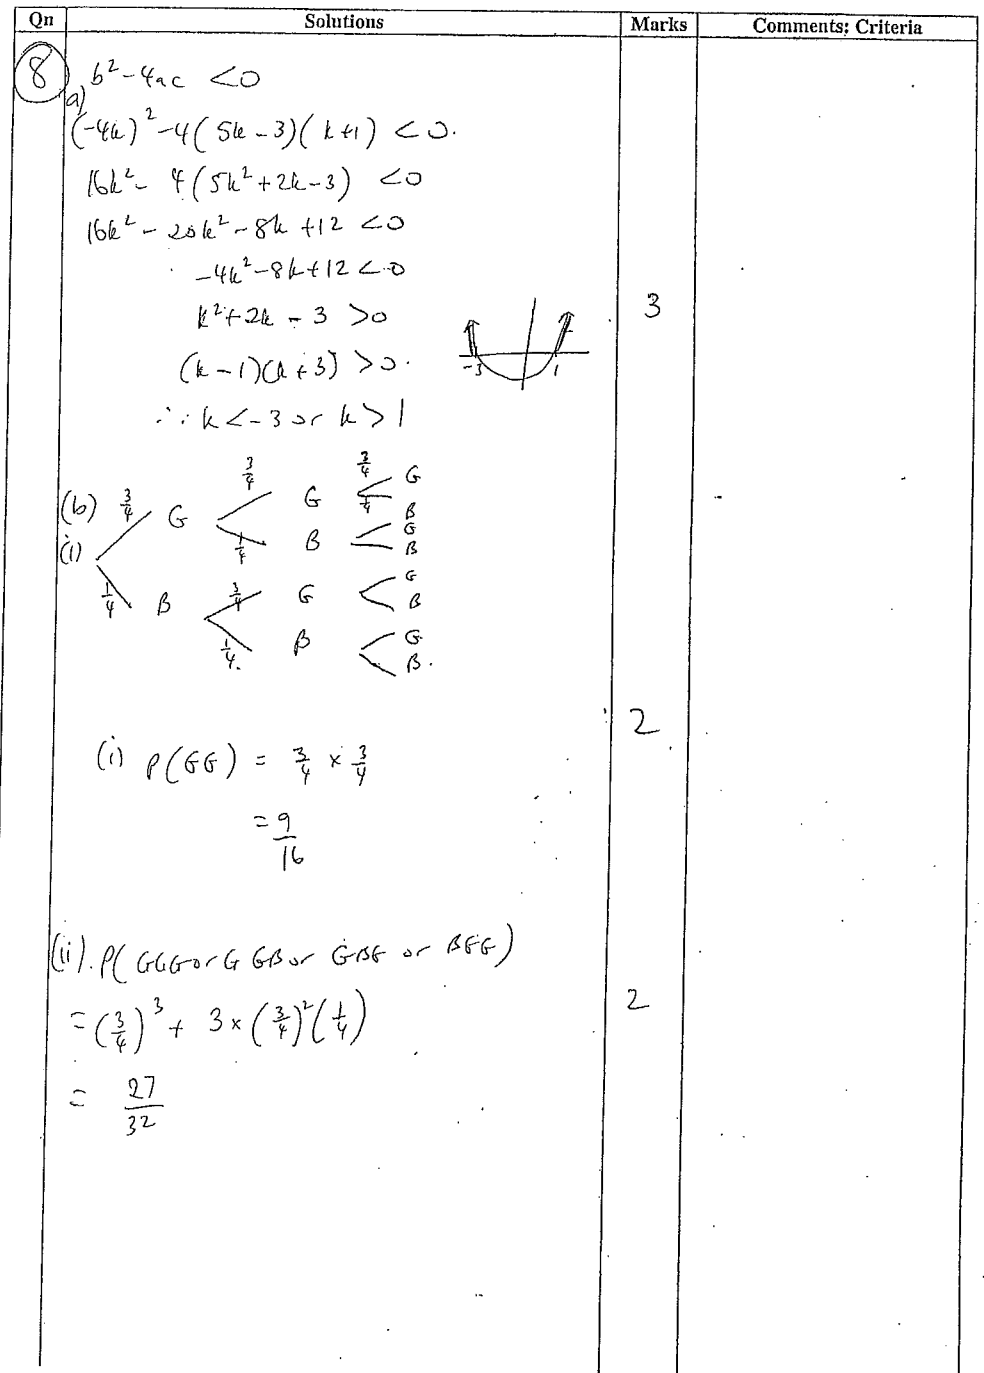 Qn Solutions Marks Comments; Criteria
8 a) b² - 4ac < 0
(-4k)² - 4(5k - 3)(k + 1) < 0.
16k² - 4(5k² + 2k - 3) < 0
16k² - 20k² - 8k + 12 < 0
-4k² - 8k + 12 < 0
k² + 2k - 3 > 0 3
(k - 1)(k + 3) > 0. -3 1
∴ k < -3 or k > 1
(b) 3/4 G 3/4 G 3/4 G
1/4 B
(i) 1/4 B G
B
1/4 B 3/4 G G
B
1/4. B G
B.
2
(i) P(GG) = 3/4 × 3/4
= 9/16
(ii). P(GGG or G GB or GBG or BGG)
= (3/4)³ + 3 × (3/4)²(1/4) 2
= 27/32